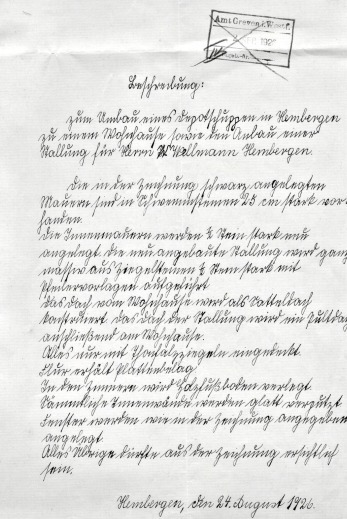 Amt Greven i. Westf.
192
Beschreibung:
zum Umbau eines Depotschuppen in Hembergen
zu einem Wohnhause sowie den Anbau einer
Stallung für Herrn Wellmann Hembergen.
Die in der Zeichnung schwarz angelegten
Mauern sind in Schwemmsteinen 25 cm stark vor-
handen.
Die Innenmauern werden ½ Stein stark neu
angelegt die neu angebaute Stallung wird ganz
massiv aus Ziegelsteinen ½ Stein stark mit
Pfeilervorlagen aufgeführt
Das Dach vom Wohnhause wird als Satteldach
konstruiert das Dach der Stallung wird ein Pultdach
anschließend am Wohnhause.
Alles nur mit Thonfalzziegeln eingedeckt.
Flur erhält Plattenbelag
In den Zimmern wird Holzfußboden verlegt.
Sämmtliche Innenwände werden glatt verputzt
Fenster werden wie in der Zeichnung angegeben
angelegt
Alles Übrige dürfte aus der Zeichnung ersichtlich
sein.
Hembergen, den 24. August 1926.